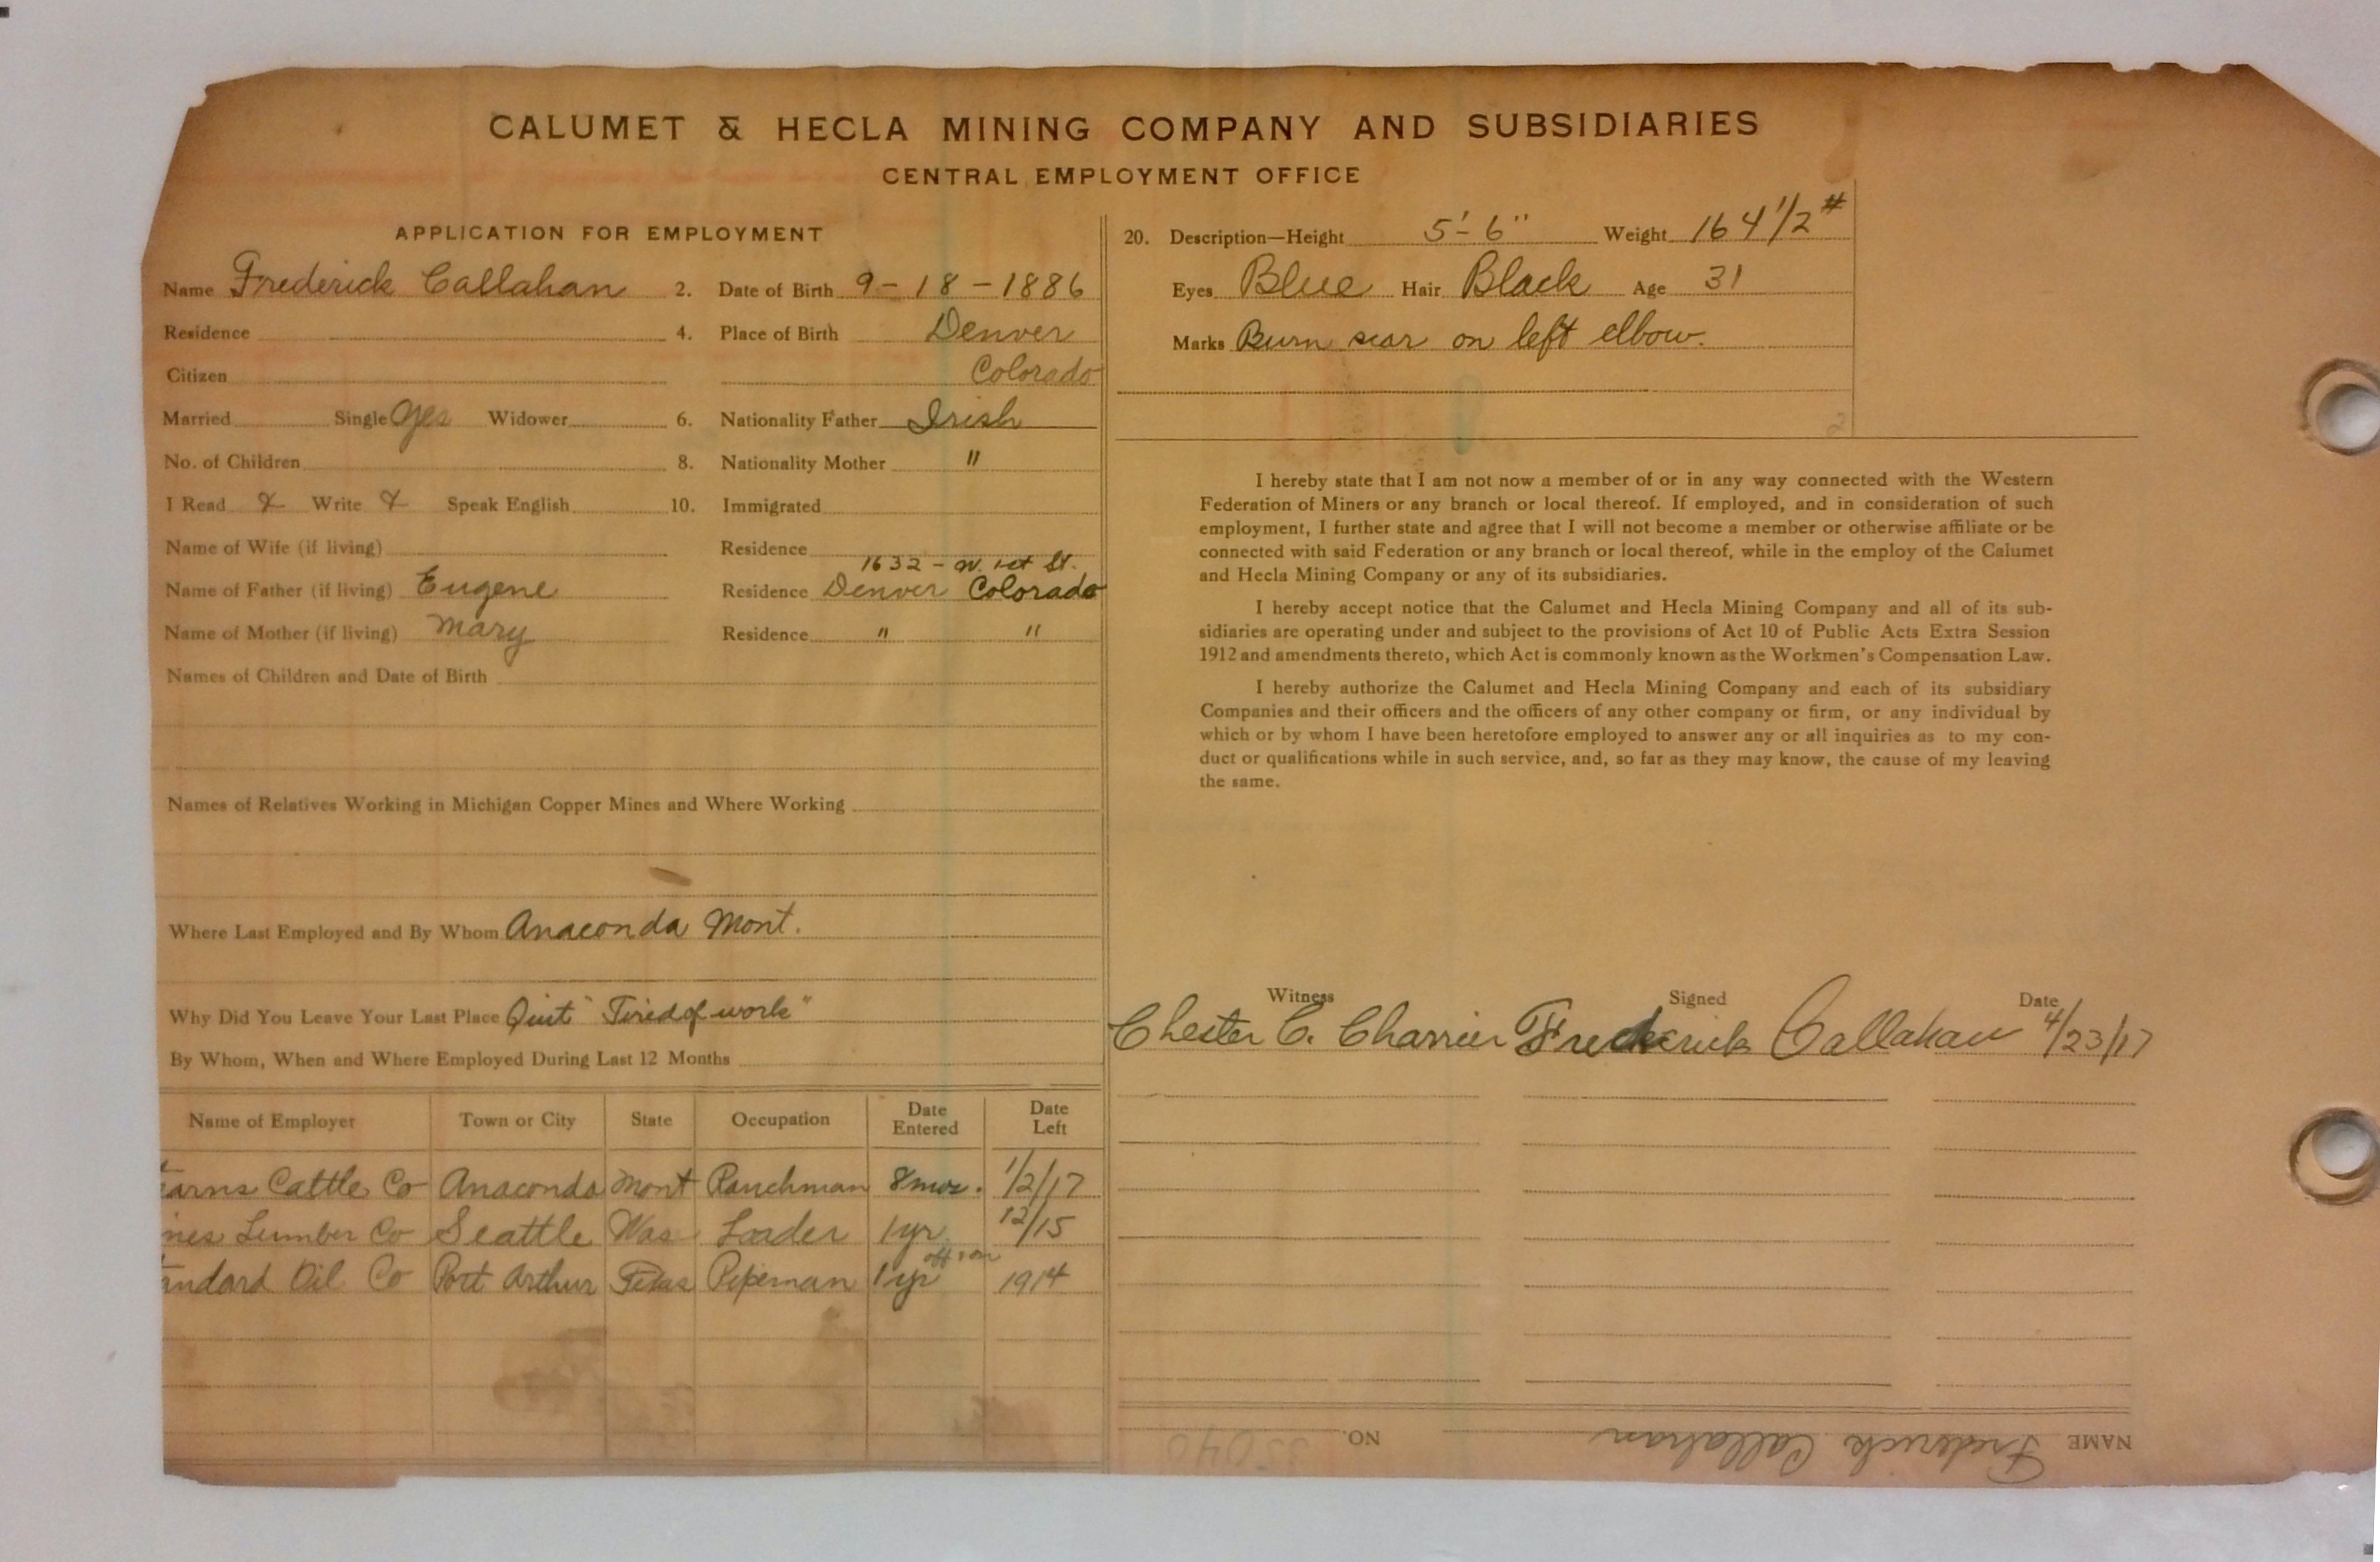 CALUMET & HECLA MINING COMPANY AND SUBSIDIARIES
CENTRAL EMPLOYMENT OFFICE
APPLICATION FOR EMPLOYMENT
Name Frederick Callahan 2. Date of Birth 9-18-1886
Residence 4. Place of Birth Denver
Citizen Colorado
Married Single Yes Widower 6. Nationality Father Irish
No. of Children 8. Nationality Mother "
I Read Write Speak English 10. Immigrated
Name of Wife (if living) Residence
1632 - W. 1st St.
Name of Father (if living) Eugene Residence Denver Colorado
Name of Mother (if living) Mary Residence " "
Names of Children and Date of Birth
Names of Relatives Working in Michigan Copper Mines and Where Working
Where Last Employed and By Whom Anaconda Mont.
Why Did You Leave Your Last Place Quit "Tired of work"
By Whom, When and Where Employed During Last 12 Months
Name of Employer Town or City State Occupation Date Entered Date Left
earns Cattle Co Anaconda Mont Ranchman 8 mos. 1/2/17
nes Lumber Co Seattle Was Loader 1 yr. 12/15
off & on
andard Oil Co Port Arthur Texas Pipeman 1 yr 1914
20. Description—Height 5'-6" Weight 164 1/2 #
Eyes Blue Hair Black Age 31
Marks Burn scar on left elbow.
2
I hereby state that I am not now a member of or in any way connected with the Western
Federation of Miners or any branch or local thereof. If employed, and in consideration of such
employment, I further state and agree that I will not become a member or otherwise affiliate or be
connected with said Federation or any branch or local thereof, while in the employ of the Calumet
and Hecla Mining Company or any of its subsidiaries.
I hereby accept notice that the Calumet and Hecla Mining Company and all of its sub-
sidiaries are operating under and subject to the provisions of Act 10 of Public Acts Extra Session
1912 and amendments thereto, which Act is commonly known as the Workmen's Compensation Law.
I hereby authorize the Calumet and Hecla Mining Company and each of its subsidiary
Companies and their officers and the officers of any other company or firm, or any individual by
which or by whom I have been heretofore employed to answer any or all inquiries as to my con-
duct or qualifications while in such service, and, so far as they may know, the cause of my leaving
the same.
Witness Signed Date
Chester C. Charrier Frederick Callahan 4/23/17
NAME Frederick Callahan NO. 35040